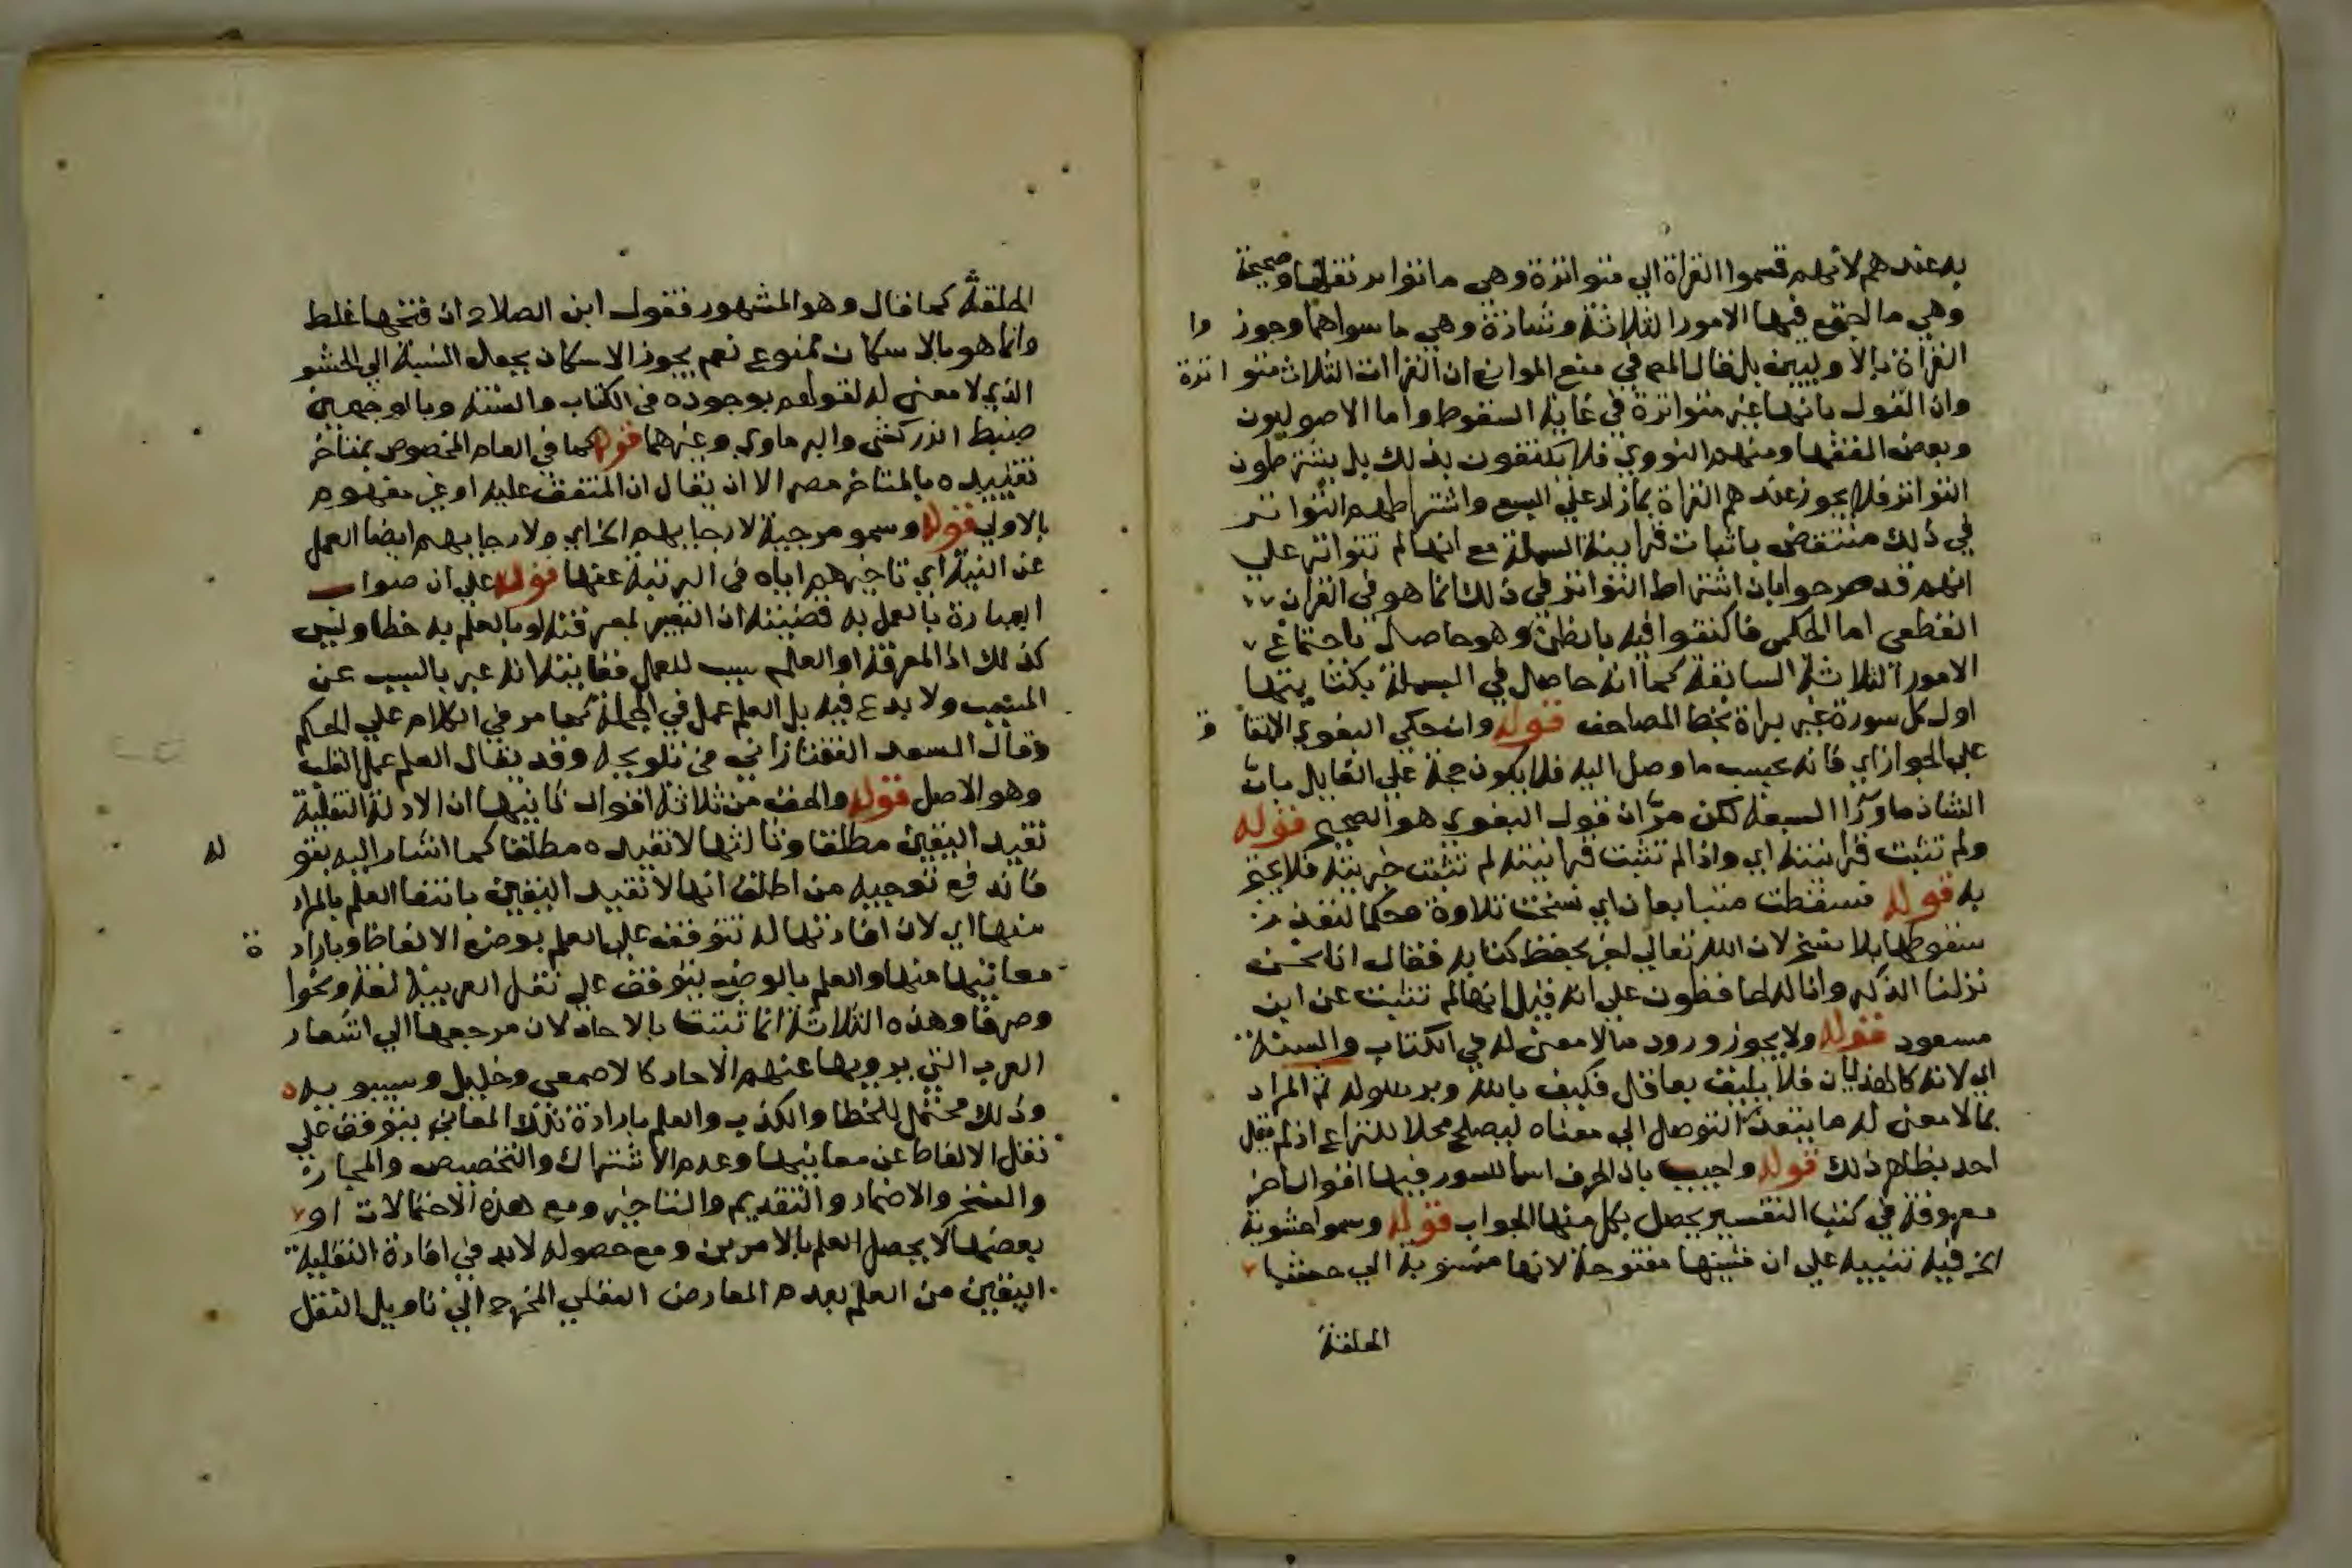 به عندهم لانهم قسموا القراة الي متواترة وهي ما تواتر نقلها وصحيحة
وهي ما اجتمع فيها الامور الثلاثة وشاذة وهي ما سواهما وجوز وا
القراة بالاوليين بل قال المص في منع الموانع ان القراات الثلاث متوا ترة
وان القول بانها غير متواترة في غاية السقوط واما الاصوليون
وبعض الفقها ومنهم النووي فلا يكتفون بذلك بل يشترطون
التواتر فلا يجوز عندهم القراة بما زاد علي السبع واشتراطهم التواتر
في ذلك منتقض باثبات قرانية البسملة مع انها لم تتواتر علي
انهم قد صرحوا بان اشتراط التواتر في ذلك انما هو في القران
القطعي اما الحكمي فاكتفوا فيه بالظن وهو حاصل باجتماع
الامور الثلاثة السابقة كما انه حاصل في البسملة بكتابتها
اول كل سورة غير براة بخط المصاحف قوله وان حكي البغوي الاتفا ق
علي الجواز اي فانه بحسب ما وصل اليه فلا يكون حجة علي القايل بان
الشاذ ما ورا السبعة لكن مر ان قول البغوي هو الصحيح قوله
ولم تثبت قرانيته اي واذا لم تثبت قرانيته لم تثبت خبريته فلا يحتج
به قوله فسقطت متتابعان اي نسخت تلاوة وحكما لتعذر
سقوطها بلا نسخ لان الله تعالي اخبر بحفظ كتابه فقال انا نحن
نزلنا الذكر وانا له لحافظون علي انه قيل انها لم تثبت عن ابن
مسعود قوله ولا يجوز ورود ما لا معني له في الكتاب والسنة
اي لانه كالهذيان فلا يليق بعاقل فكيف بالله وبرسوله ثم المراد
بما لا معني له ما يتعذر التوصل الي معناه ليصلح محلا للنزاع اذ لم يقل
احد بظاهر ذلك قوله واجيب بان الحروف اسما للسور فيها اقوال اخر
معروفة في كتب التفسير يحصل بكل منها الجواب قوله وسموا حشوية
الخ فيه تنبيه علي ان شينها مفتوحة لانها منسوبة الي حشا
الحلقة
الحلقة كما قال وهو المشهور فقول ابن الصلاح ان فتحها غلط
وانما هو بالاسكان ممنوع نعم يجوز الاسكان بجعل النسبة الي الحشو
الذي لا معني له لقولهم بوجوده في الكتاب والسنة وبالوجهين
ضبط الزركشي والبرماوي وغيرهما قوله كما في العام المخصوص بمتاخر
تقييده بالمتاخر مضر الا ان يقال ان المتفق عليه او غير مفهوم
بالاولي قوله وسموا مرجية لارجايهم الخ اي ولارجايهم ايضا العمل
عن النية اي تاخيرهم اياه في الرتبة عنها قوله علي ان صواب
العبارة بالعمل به قضيته ان التعبير لمعرفته او بالعلم به خطا وليس
كذلك اذ المعرفة او العلم سبب للعمل فغايته انه عبر بالسبب عن
المسبب ولا بدع فيه بل العلم عمل في الجملة كما مر في الكلام علي الحاكم
وقال السعد التفتازاني في تلويحه وقد يقال العلم عمل القلب
وهو الاصل قوله والحق من ثلاثة اقوال ثانيها ان الادلة النقلية
تفيد اليقين مطلقا وثالثها لا تفيده مطلقا كما اشار اليه بقو له
فاندفع توجيه من اطلق انها لا تفيد اليقين بانتفا العلم بالمراد
منها اي لان افادتها له تتوقف علي العلم بوضع الالفاظ وباراد ة
معانيها منها والعلم بالوضع يتوقف علي نقل العربية لغة ونحوا
وصرفا وهذه الثلاثة انما ثبتت بالاحاد لان مرجعها الي اشعار
العرب التي يرويها عنهم الاحاد كالاصمعي وخليل وسيبويه
وذلك محتمل للخطا والكذب والعلم بارادة تلك المعاني يتوقف علي
نقل الالفاظ عن معانيها وعدم الاشتراك والتخصيص والمجاز
والنسخ والاضمار والتقديم والتاخير ومع هذه الاحتمالات او
بعضها لا يحصل العلم بالامرين ومع حصوله لا بد في افادة النقلية
اليقين من العلم بعدم المعارض العقلي المخرج الي تاويل النقل